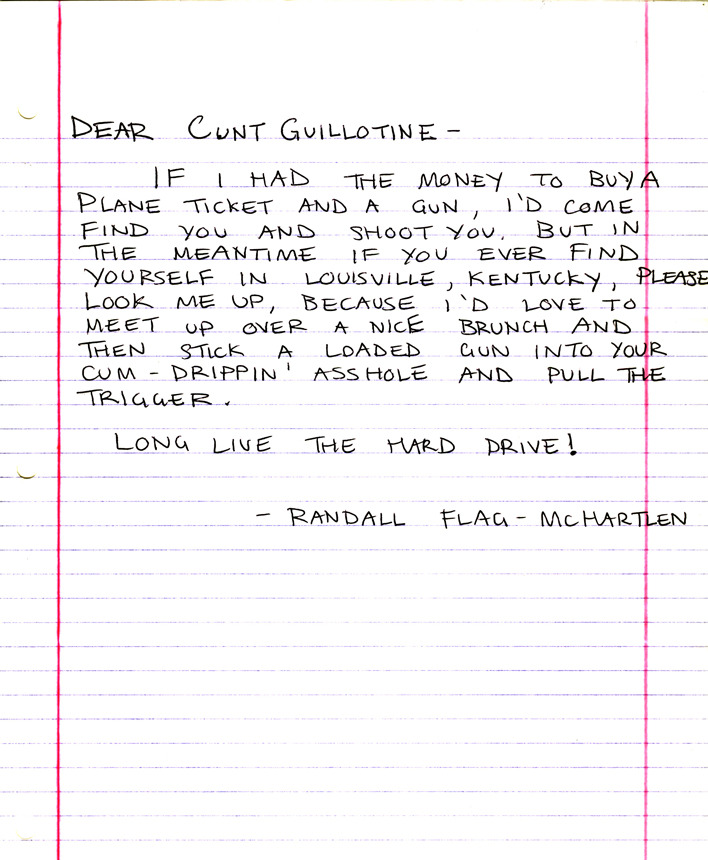 DEAR CUNT GUILLOTINE –
IF I HAD THE MONEY TO BUY A
PLANE TICKET AND A GUN, I'D COME
FIND YOU AND SHOOT YOU. BUT IN
THE MEANTIME IF YOU EVER FIND
YOURSELF IN LOUISVILLE, KENTUCKY, PLEASE
LOOK ME UP, BECAUSE I'D LOVE TO
MEET UP OVER A NICE BRUNCH AND
THEN STICK A LOADED GUN INTO YOUR
CUM-DRIPPIN' ASSHOLE AND PULL THE
TRIGGER.
LONG LIVE THE HARD DRIVE!
– RANDALL FLAG-MCHARTLEN